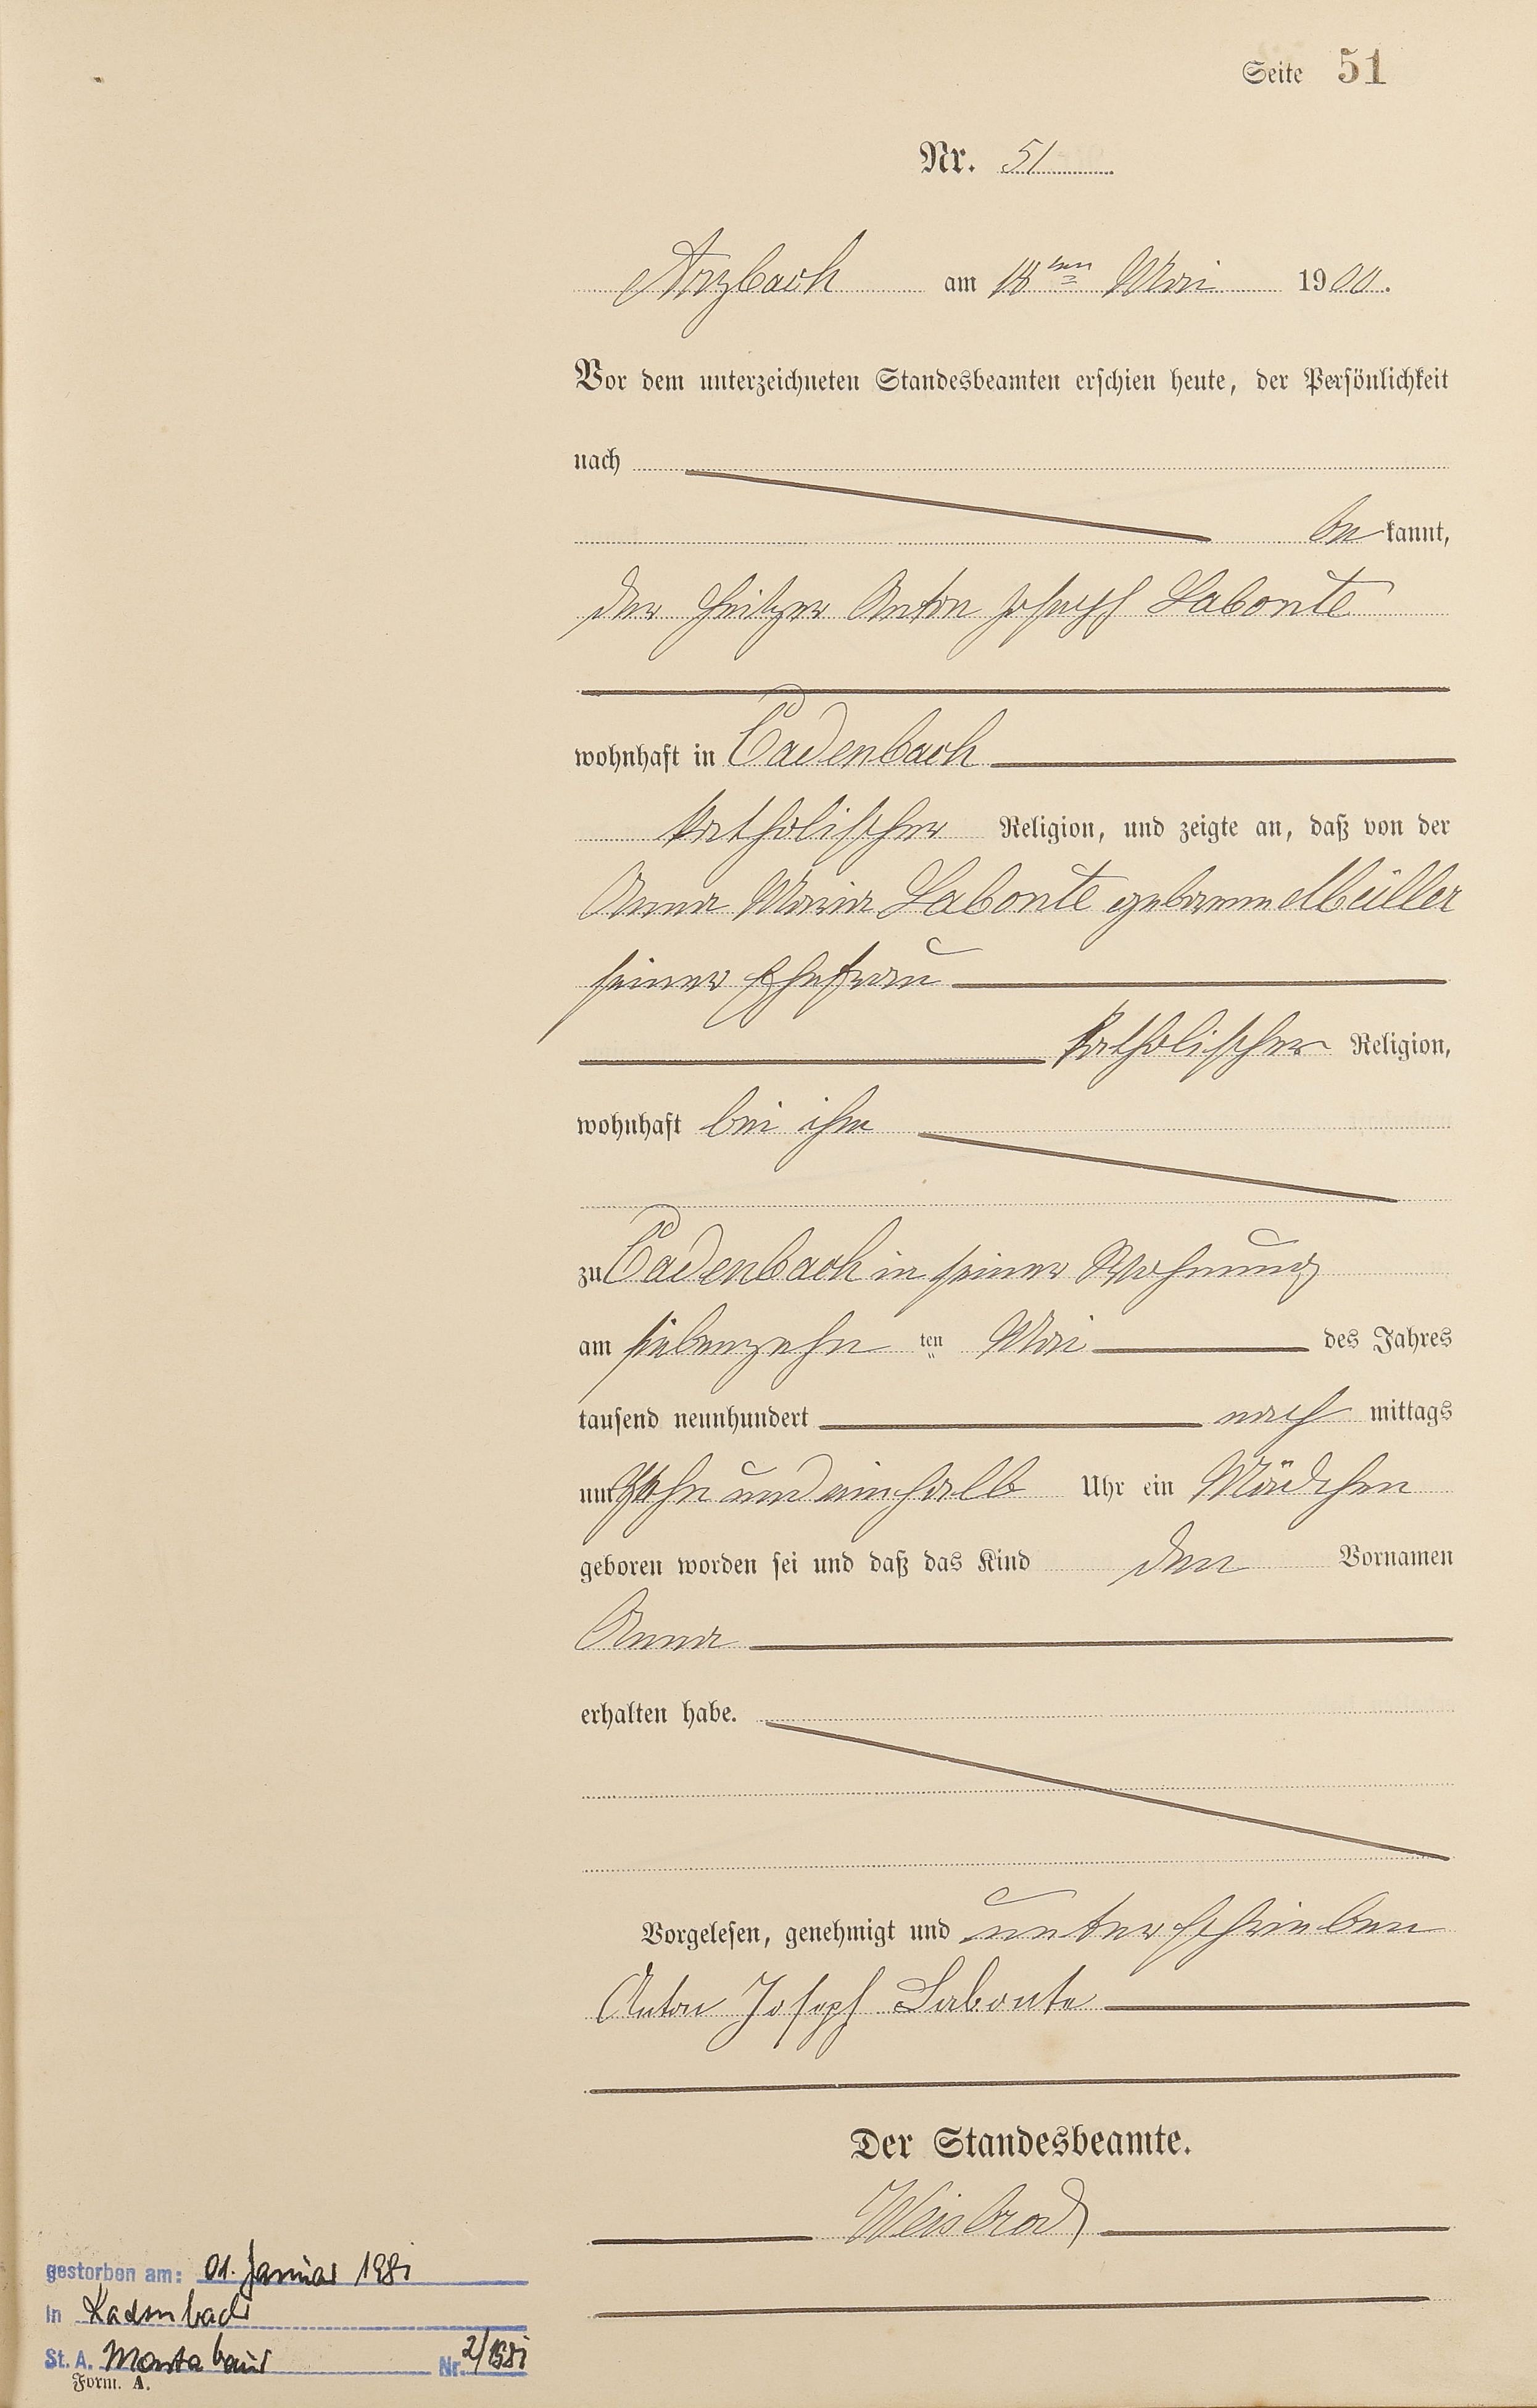 Seite 51
Nr. 51
Arzbach am 18ten Mai 1900.
Vor dem unterzeichneten Standesbeamten erschien heute, der Persönlichkeit
nach
be kannt,
der Heitzer Anton Joseph Labonte
wohnhaft in Cadenbach
katholischer Religion, und zeigte an, daß von der
Anna Maria Labonte geborenen Müller
seiner Ehefrau
katholischer Religion,
wohnhaft bei ihm
zu Cadenbach in seiner Wohnung
am siebenzehn ten Mai des Jahres
tausend neunhundert nach mittags
um Zehn und einhalb Uhr ein Mädchen
geboren worden sei und daß das Kind den Vornamen
Anna
erhalten habe.
Vorgelesen, genehmigt und unterschrieben
Anton Joseph Labonte
Der Standesbeamte.
Weisbrod
gestorben am: 01. Januar 1981
in Kadenbach
St. A. Montabaur Nr. 2/1981
Form. A.